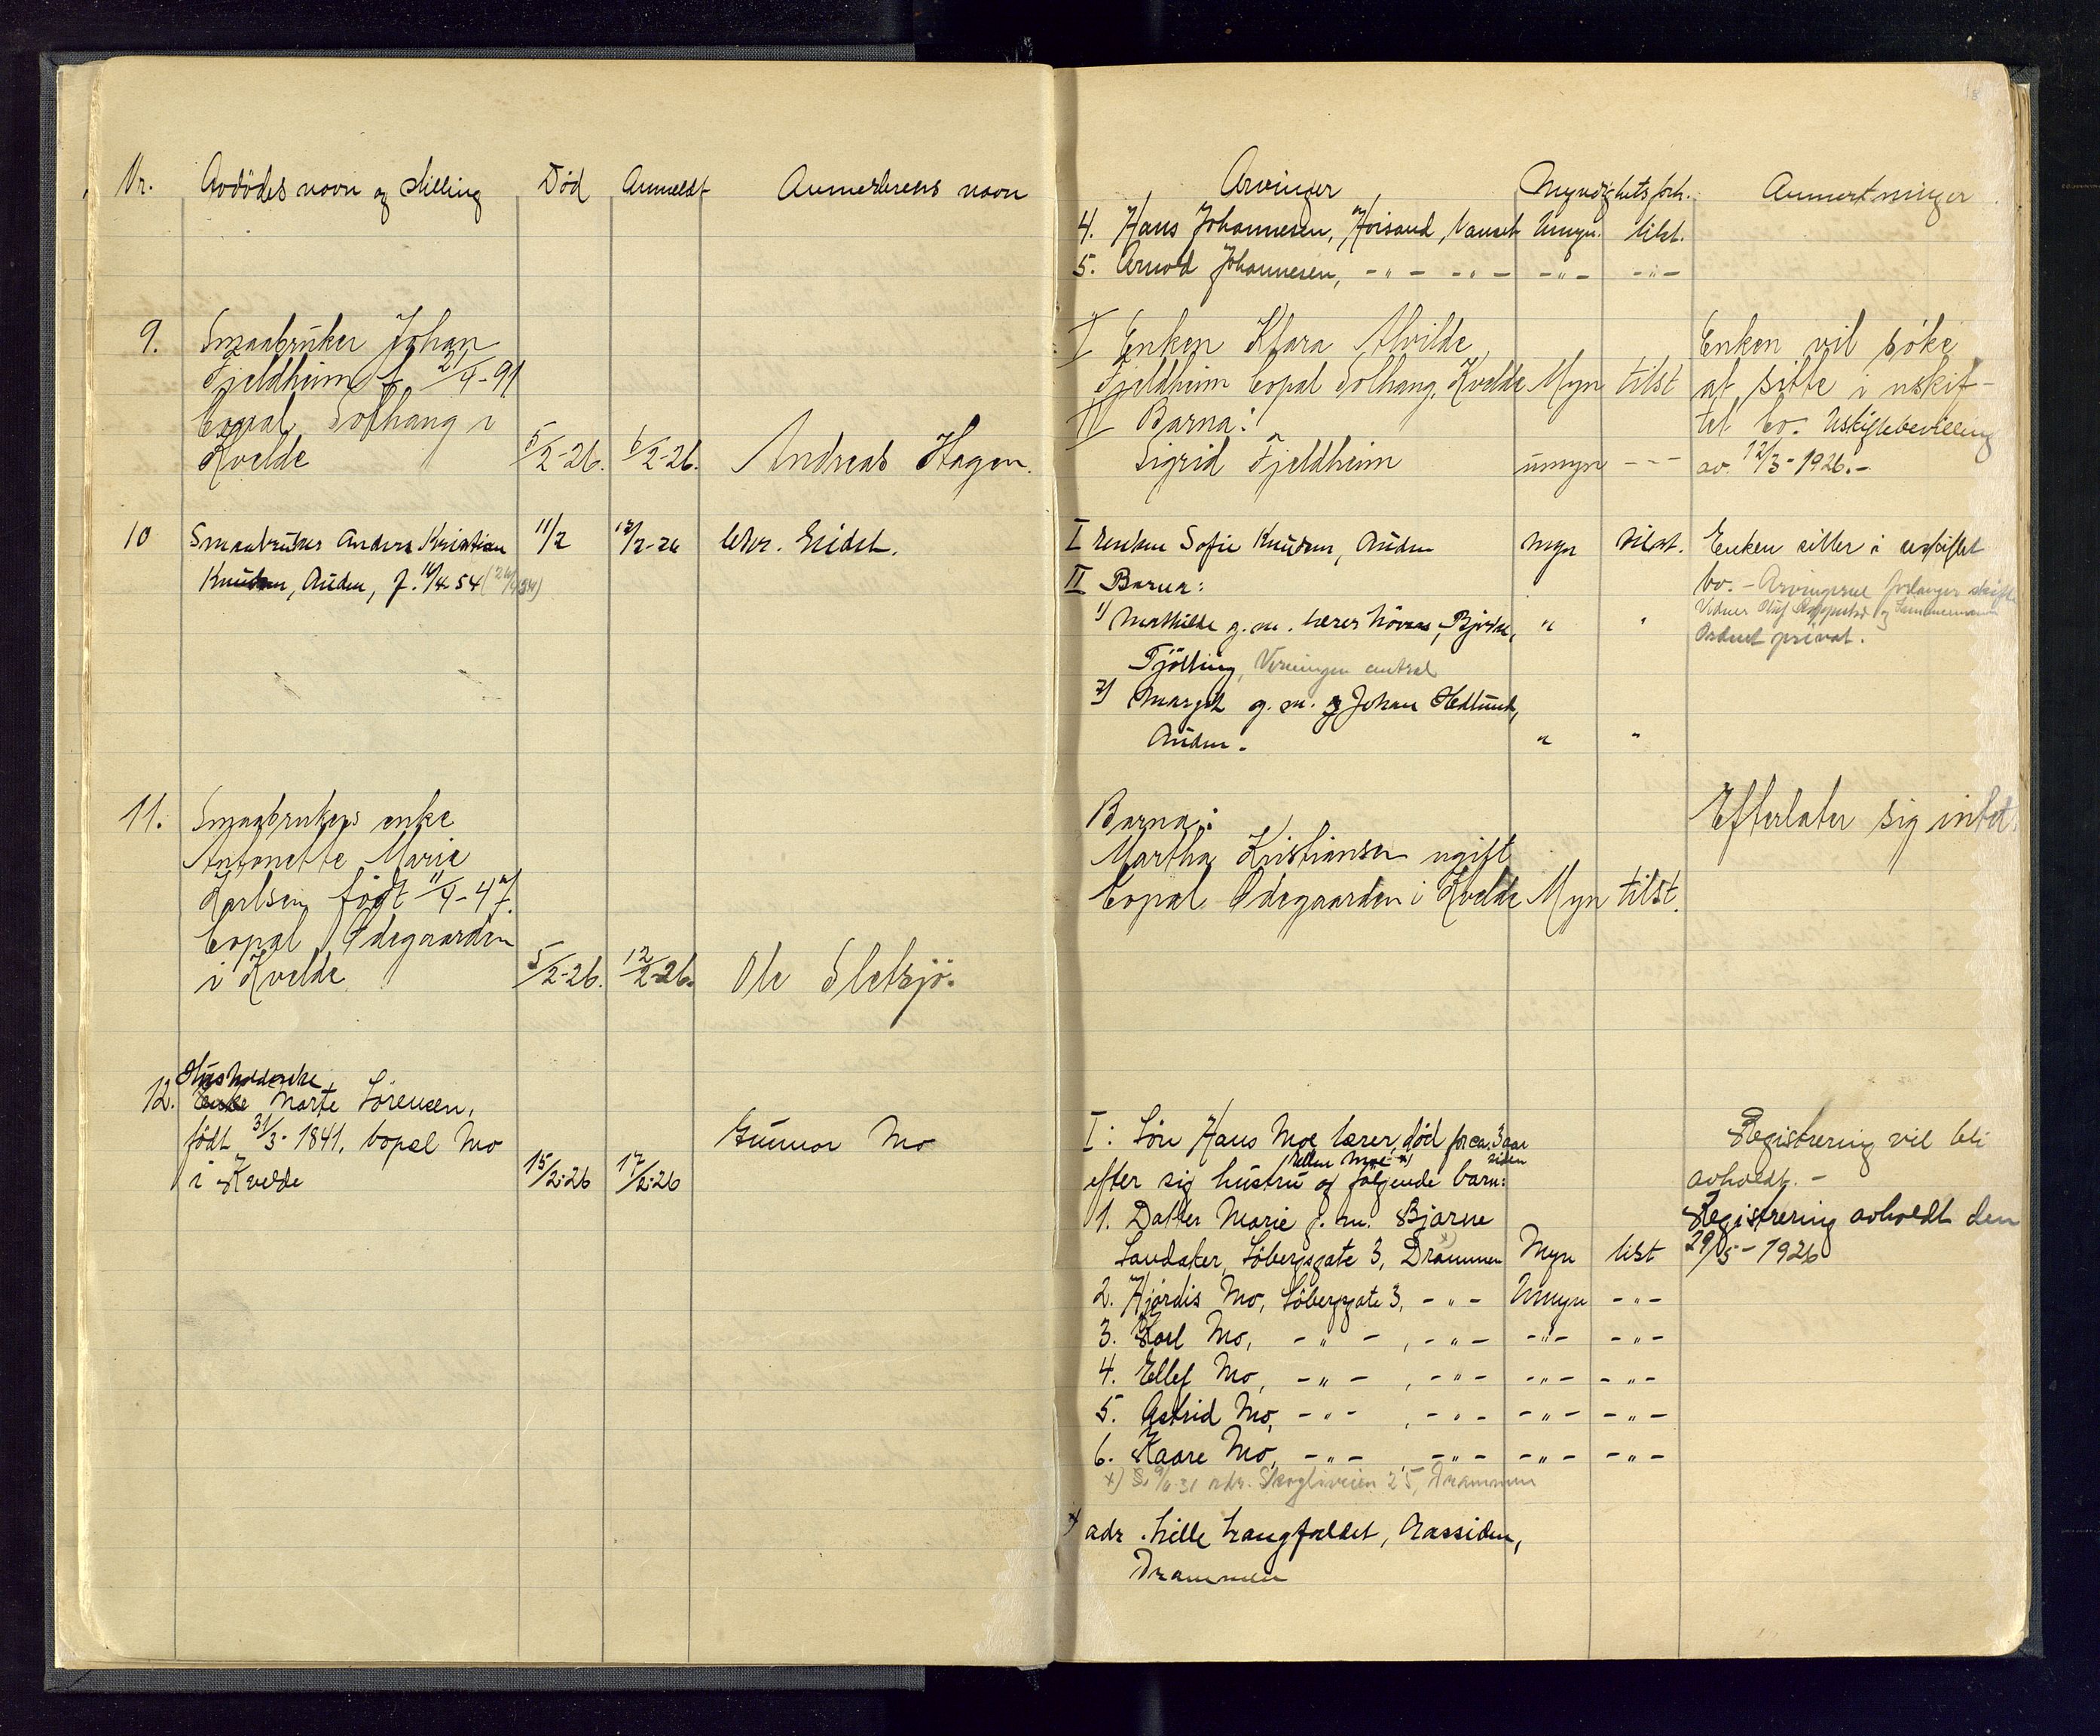 Nr. Avdödes navn og stilling Död Anmeldt Anmelderens navn
9. Smaabruker Johan
Fjeldheim f. 21/4-91
bopal Solhaug i
Kvelde 5/2-26. 6/2-26. Andreas Hagen.
10 Smaabruker Anders Kristian 11/2 12/2-26 Chr. Eidet.
Knudsen, Auden, f. 16/4 54
11. Smaabrukers enke
Antonette Marie
Karlsen født 11/4-47.
bopal Ødegaarden
i Kvelde 5/2-26. 12/2-26. Ole Sletsjø.
Husholderske
12. Enke Marte Sörensen,
födt 31/3-1841. bopæl Mo Gunnar Mo
i Kvelde 15/2-26 17/2-26
Arvinger Myndighetsforh. Anmerkninger
4. Hans Johannesen, Horsand, Umyn. tilst.
5. Arnold Johannesen, -"- -"- -"- -"-
I Enken Klara Alvilde Enken vil söke
Fjeldheim bopal Solhaug, Kvelde Myn tilst at sitte i uskif-
II Barna: tet bo. Uskiftebevilling
Sigrid Fjeldheim umyn --- av 12/3-1926.-
I Enken Sofie Knudsen, Auden myn tilst. Enken sitter i uskiftet
II Barna: bo. - Arvingerne forlanger skifte
1) Mathilde g.m. lærer Bjerke, " " Vidner Oluf og
Tjölling, central Ordnet privat.
2) Margit g.m. Johan Hedlund,
Auden. " "
Barna: Efterlater sig intet.
Martha Kristiansen ugift
bopal Ødegaarden i Kvelde Myn tilst.
I: Sön Hans Moe lærer, död for ca. 3 aar Registrering vil bli
siden
efter sig hustru og fölgende barn: avholdt. -
1. Datter Marie g.m. Bjarne Registrering avholdt den
Sandaker, Söbergsgate 3, Drammen Myn tilst 29/5-1926
2. Hjördis Mo, Söbergsgate 3, -"- Umyn -"-
3. Karl Mo, -"-, -"- -"- -"-
4. Ellef Mo, -"-, -"- -"- -"-
5. Astrid Mo, -"-, -"- -"- -"-
6. Kaare Mo, -"- -"- -"- -"-
x) 9/6-31 adr. Skogliveien 25, Drammen
x) adr. Lille Langfaldet, Aassiden,
Drammen